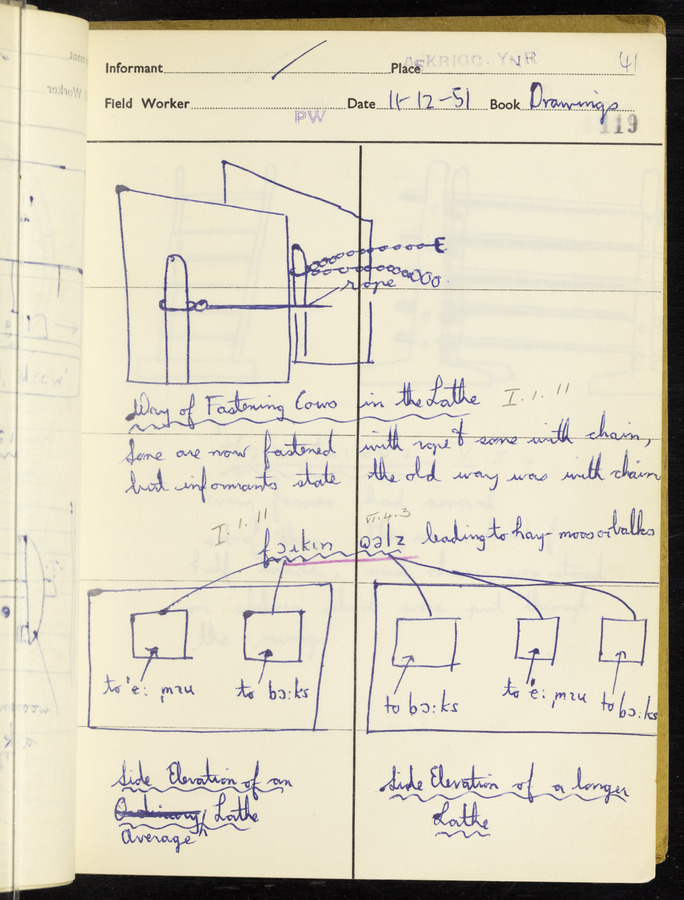 Informant / Place ASKRIGG. YNR 41
Field Worker PW Date 11-12-51 Book Drawings
119
rope
Way of Fastening Cows in the Lathe I.1.11
Some are now fastened with rope & some with chain,
but informants state the old way was with chain
I.1.11 VI.4.3
fɔɹkın leading to hay-moos or balks
to 'e: ˌmɜu to bɔ:ks
to bɔ:ks to 'e: ˌmɜu to bɔ:ks
Side Elevation of an
Ordinary Lathe
Average ^
Side Elevation of a longer
Lathe